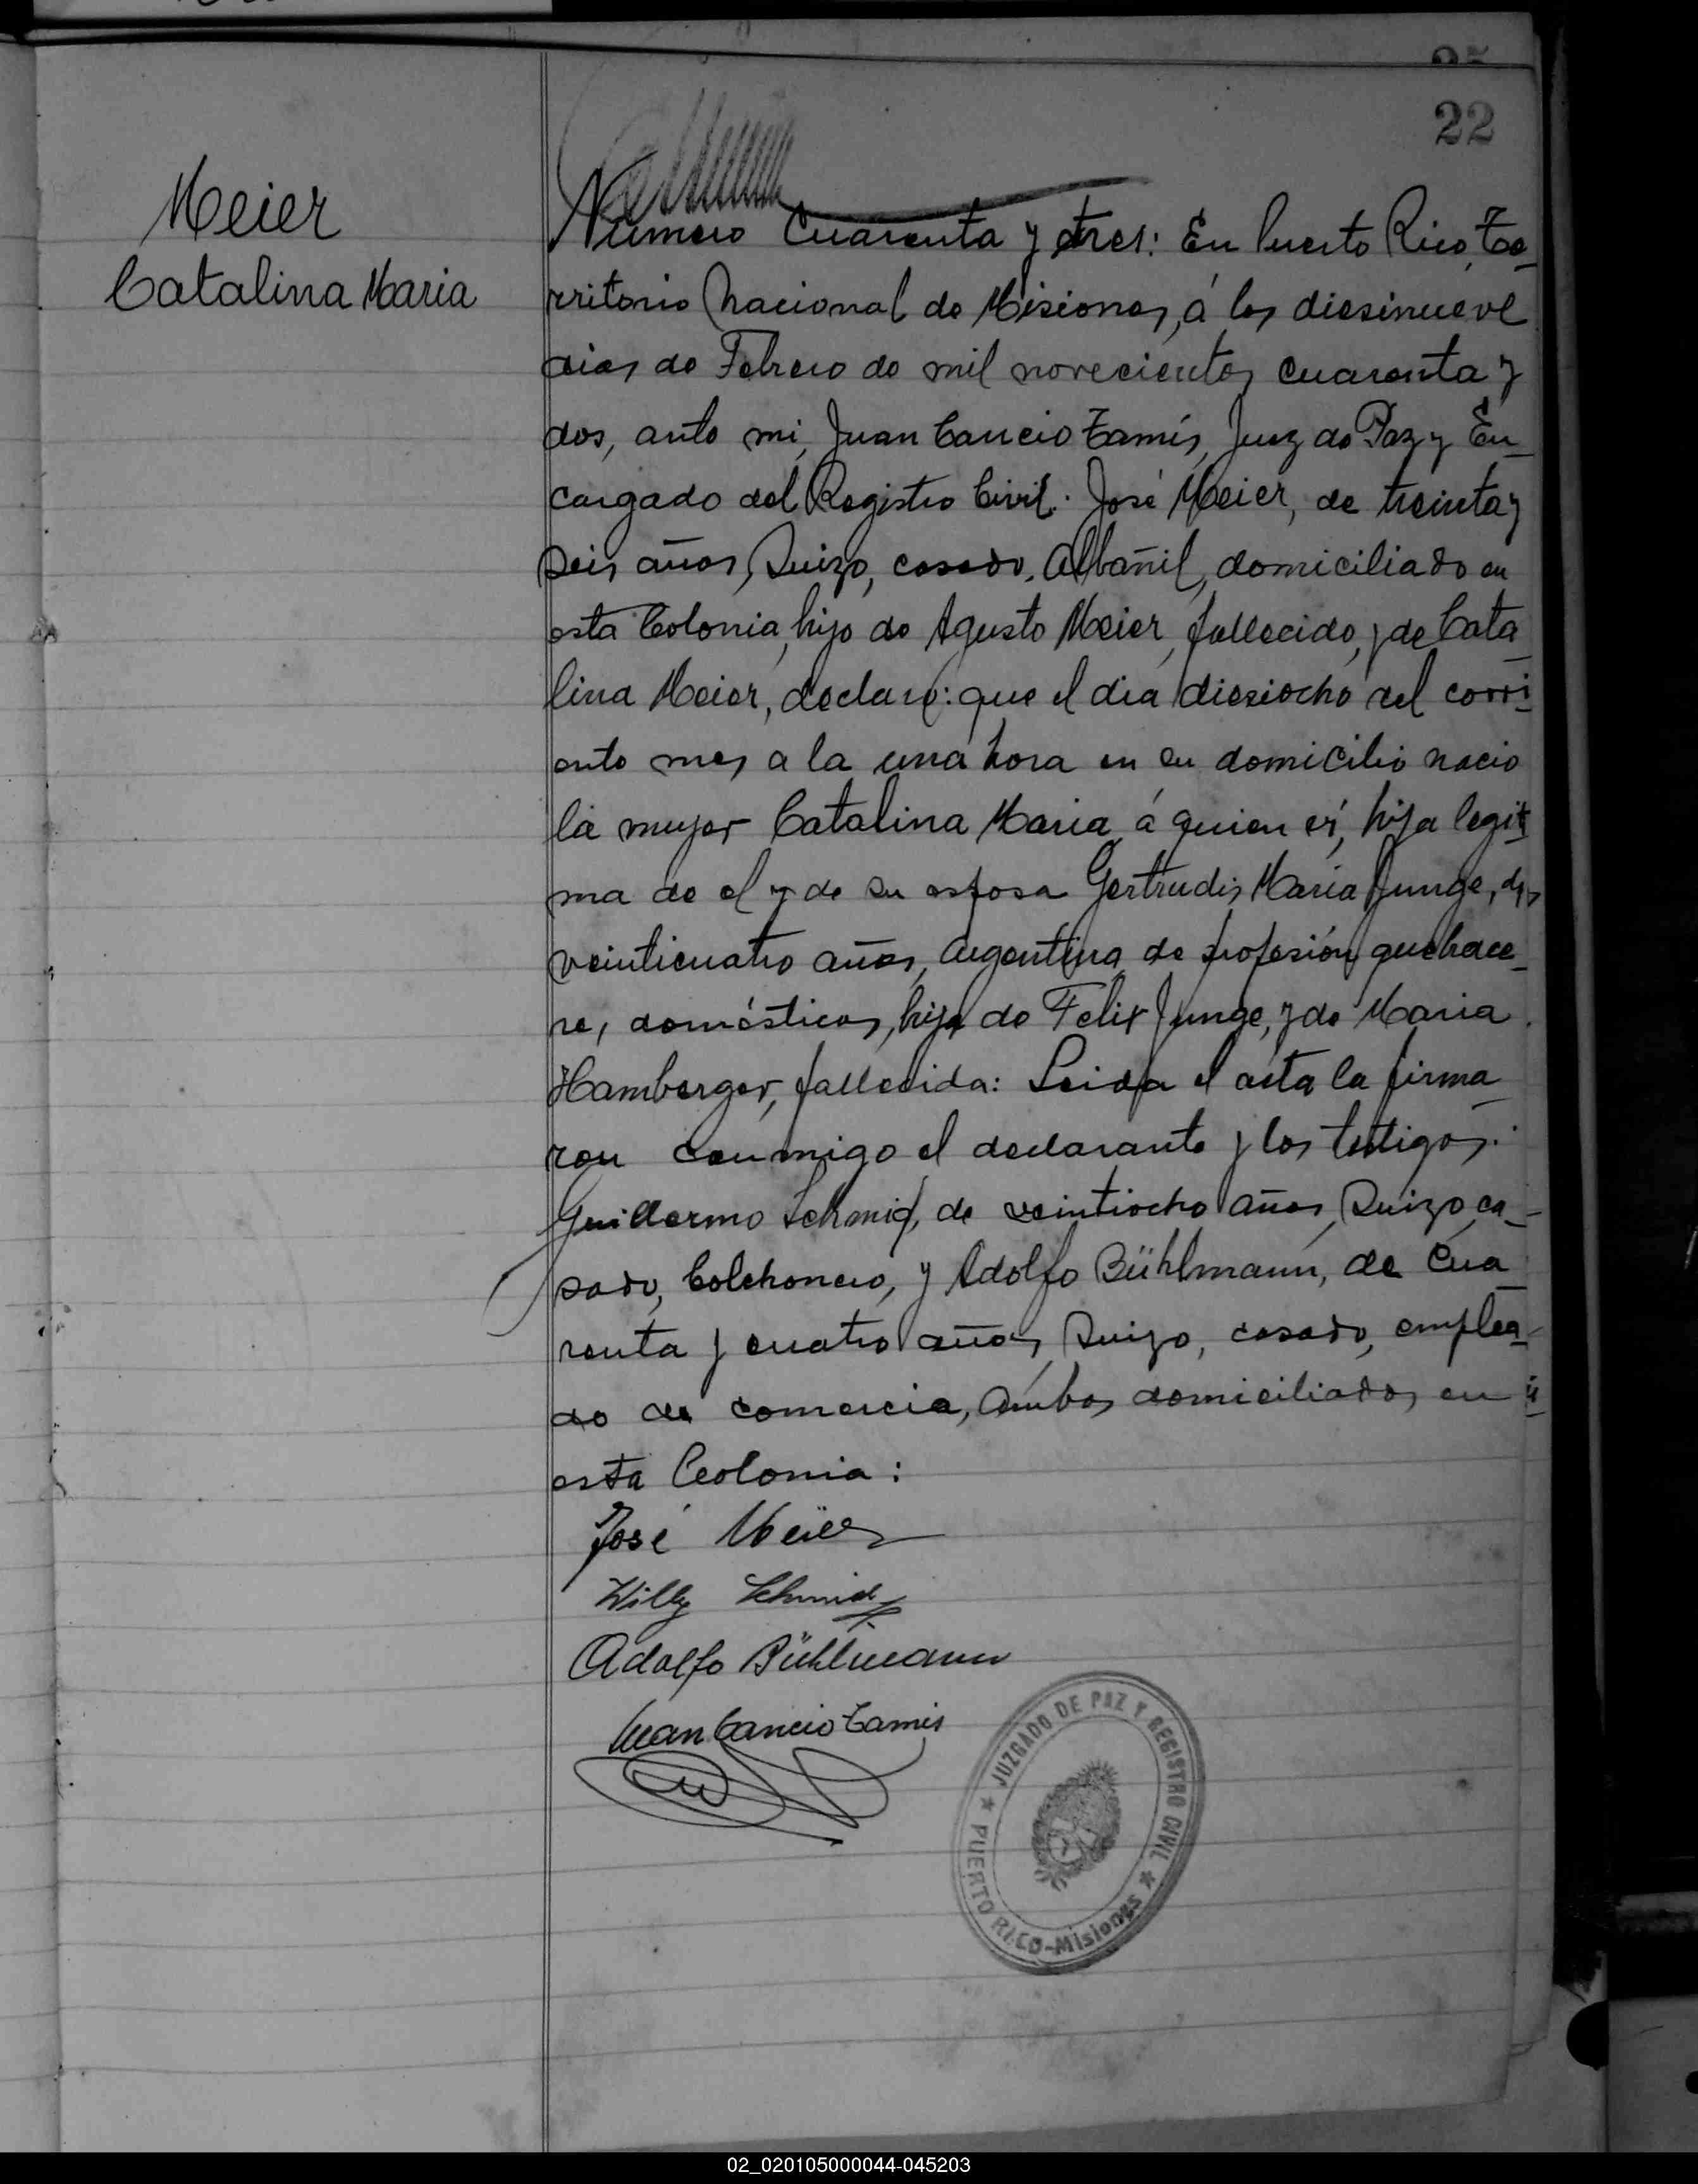 22
Meier
Catalina Maria
Número Cuarenta y tres: En Puerto Rico, Te-
rritorio Nacional de Misiones, á los diesinueve
dias de Febrero de mil novecientos cuarenta y
dos, ante mi, Juan Cancio Tamis, Juez de Paz y En-
cargado del Registro Civil. José Meier, de treinta y
seis años, Suizo, casado, Albañil, domiciliado en
esta Colonia, hijo de Agusto Meier, fallecido, y de Cata-
lina Meier, declaró: que el dia diesiocho del corri-
ente mes a la una hora en su domicilio nacio
la mujer Catalina Maria á quien es, hija legit-
ma de el y de su esposa Gertrudis Maria Junge, de
veinticuatro años, Argentina de profesión quehace-
res domésticos, hija de Felix Junge, y de Maria
Hamberger, fallecida: Leida el acta la firma-
rou conmigo el declarante y los testigos:
Guillermo Schmid, de veintiocho años, Suizo, ca-
sado, Colchonero, y Adolfo Bühlmann, de Cua-
renta y cuatro años, Suizo, casado, emplea-
do de comercio, ambos domiciliados en
esta Colonia:
José Meier
Willy Schmid
Adolfo Bühlmann
Juan Cancio Tamis
JUZGADO DE PAZ Y REGISTRO CIVIL
PUERTO RICO-Misiones
02_020105000044-045203